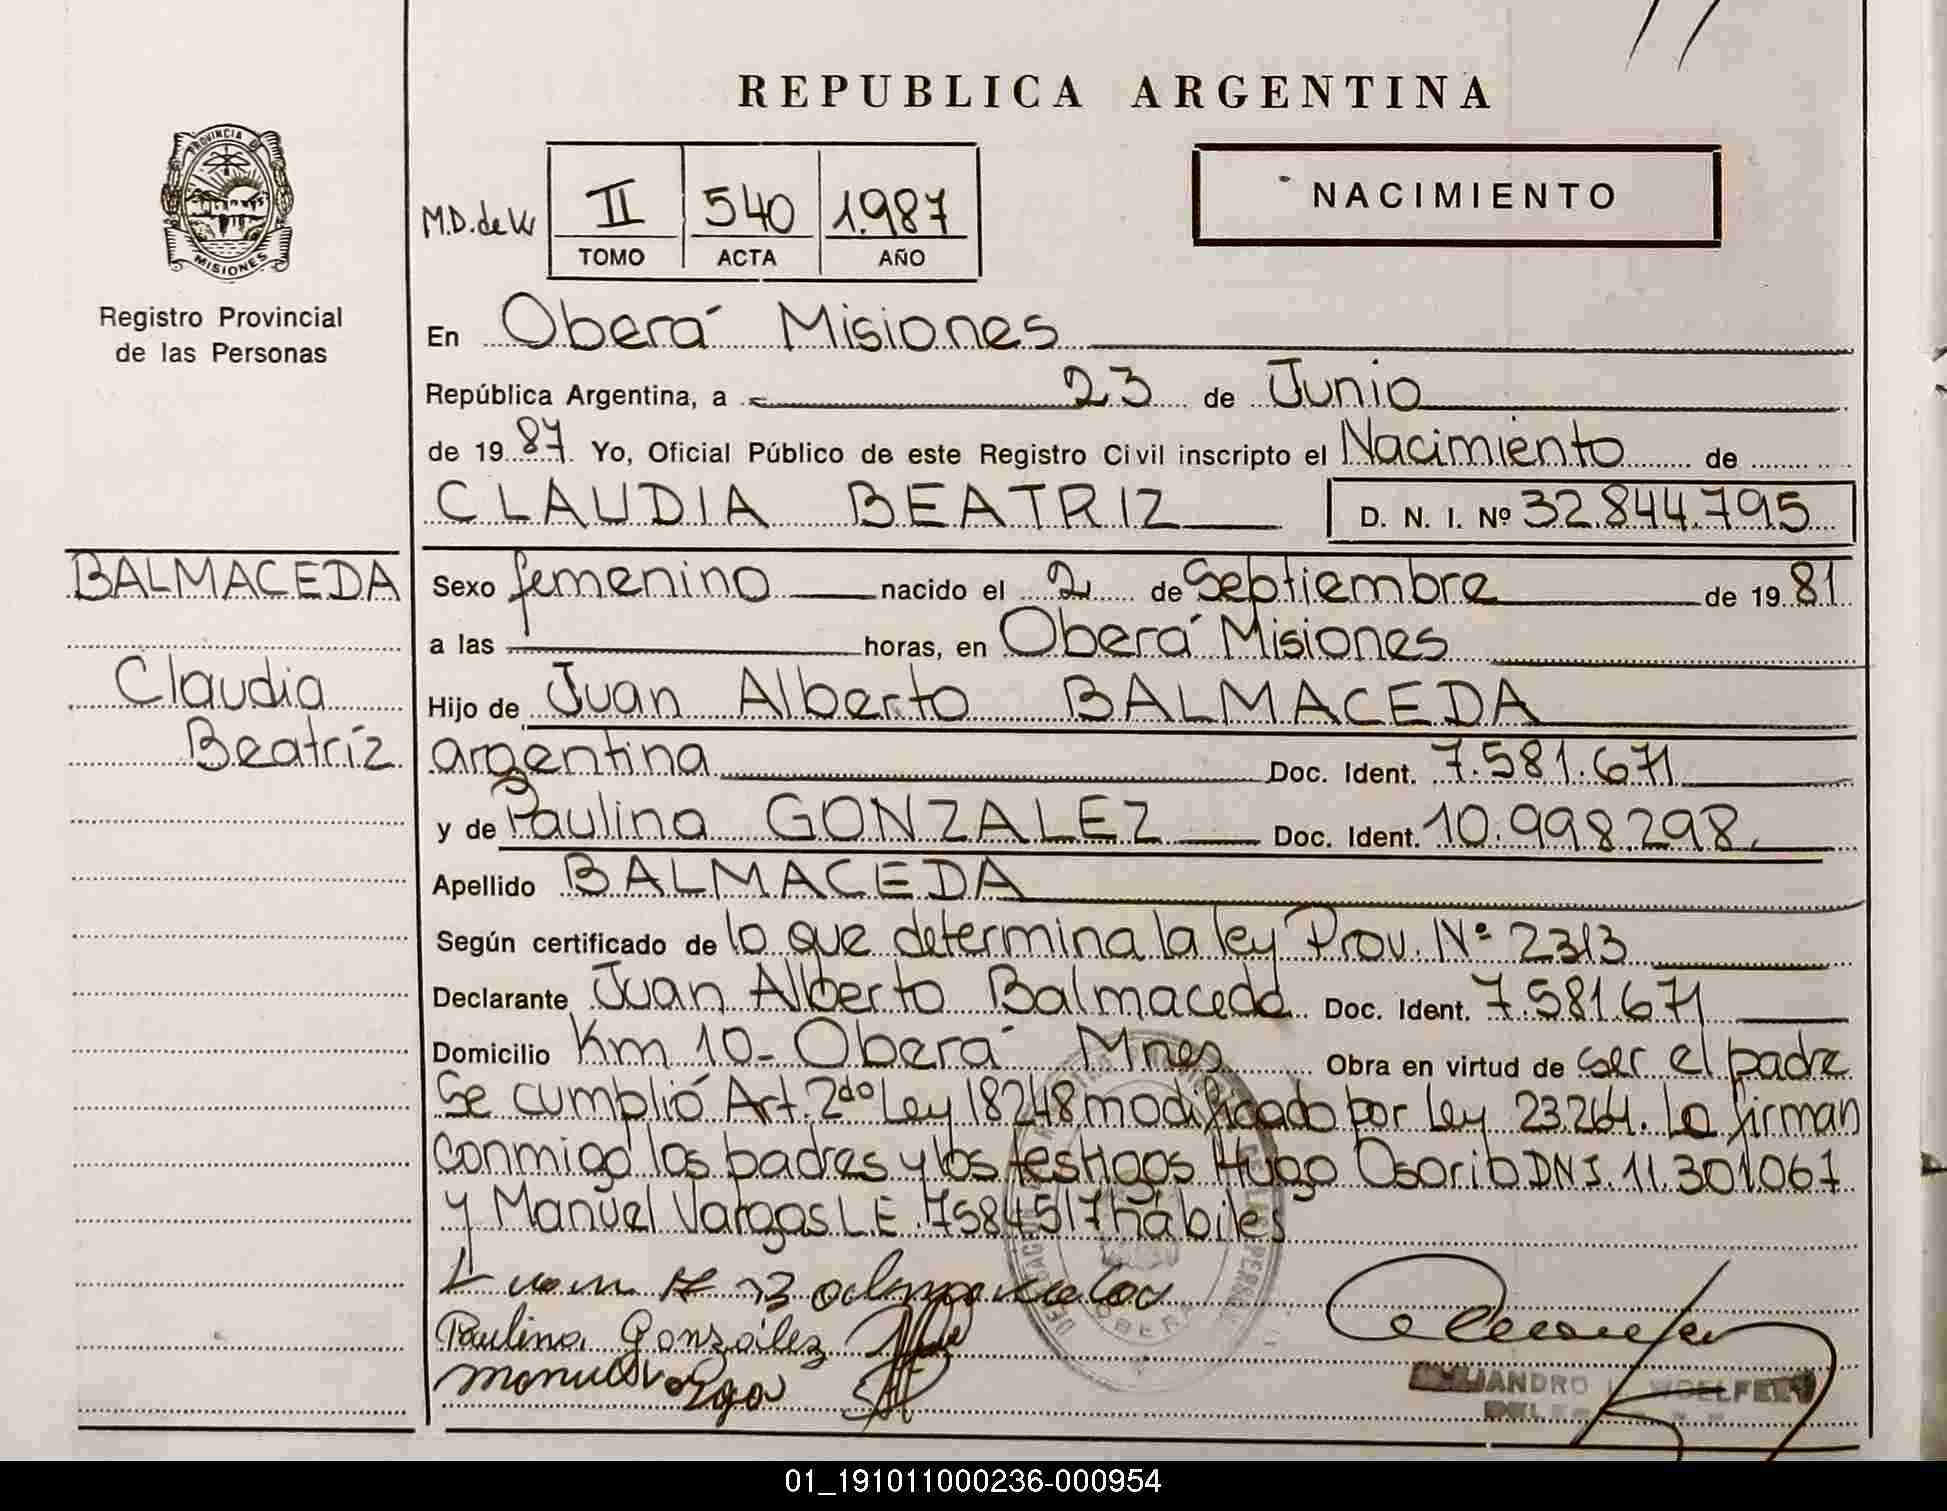 REPUBLICA ARGENTINA
PROVINCIA DE
MISIONES
Registro Provincial
de las Personas
M.D. de W
II 540 1.987
TOMO ACTA AÑO
NACIMIENTO
En Oberá Misiones
República Argentina, a 23 de Junio
de 1987. Yo, Oficial Público de este Registro Civil inscripto el Nacimiento de
CLAUDIA BEATRIZ D. N. I. Nº 32.844.795
BALMACEDA
Claudia
Beatríz
Sexo femenino nacido el 2 de Septiembre de 1981
a las horas, en Oberá Misiones
Hijo de Juan Alberto BALMACEDA
argentina Doc. Ident. 7.581.671
y de Paulina GONZALEZ Doc. Ident. 10.998.298
Apellido BALMACEDA
Según certificado de lo que determina la ley Prov. Nº 2313
Declarante Juan Alberto Balmaceda Doc. Ident. 7.581.671
Domicilio Km 10- Oberá Mnes Obra en virtud de ser el padre
Se cumplió Art. 2do Ley 18248 modificado por Ley 23.264. Lo firman
conmigo los padres y los testigos Hugo Osorio DNI. 11.301.067
y Manuel Vargas L.E. 7584517 hábiles
Juan A Balmaceda
Paulina González
OBERA
WOELFERT
01_191011000236-000954